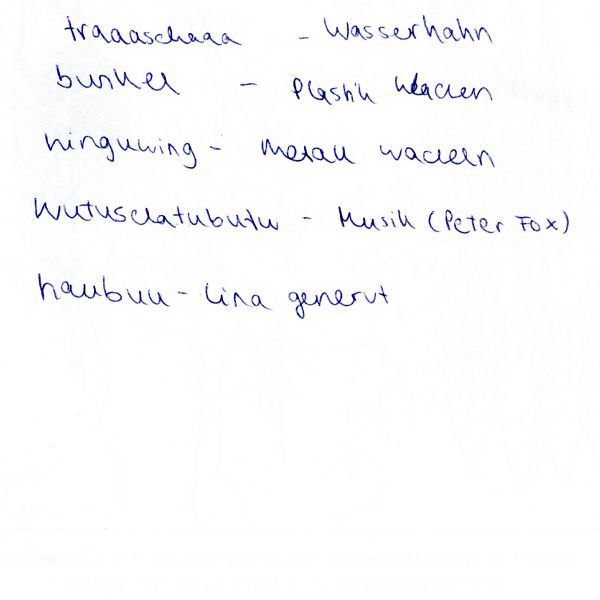 traaaschaaa - Wasserhahn
bunkel - Plastik
ninguwing - Metall wackeln
Wutusclatubutu - Musik (Peter Fox)
haubuu - Lina genervt